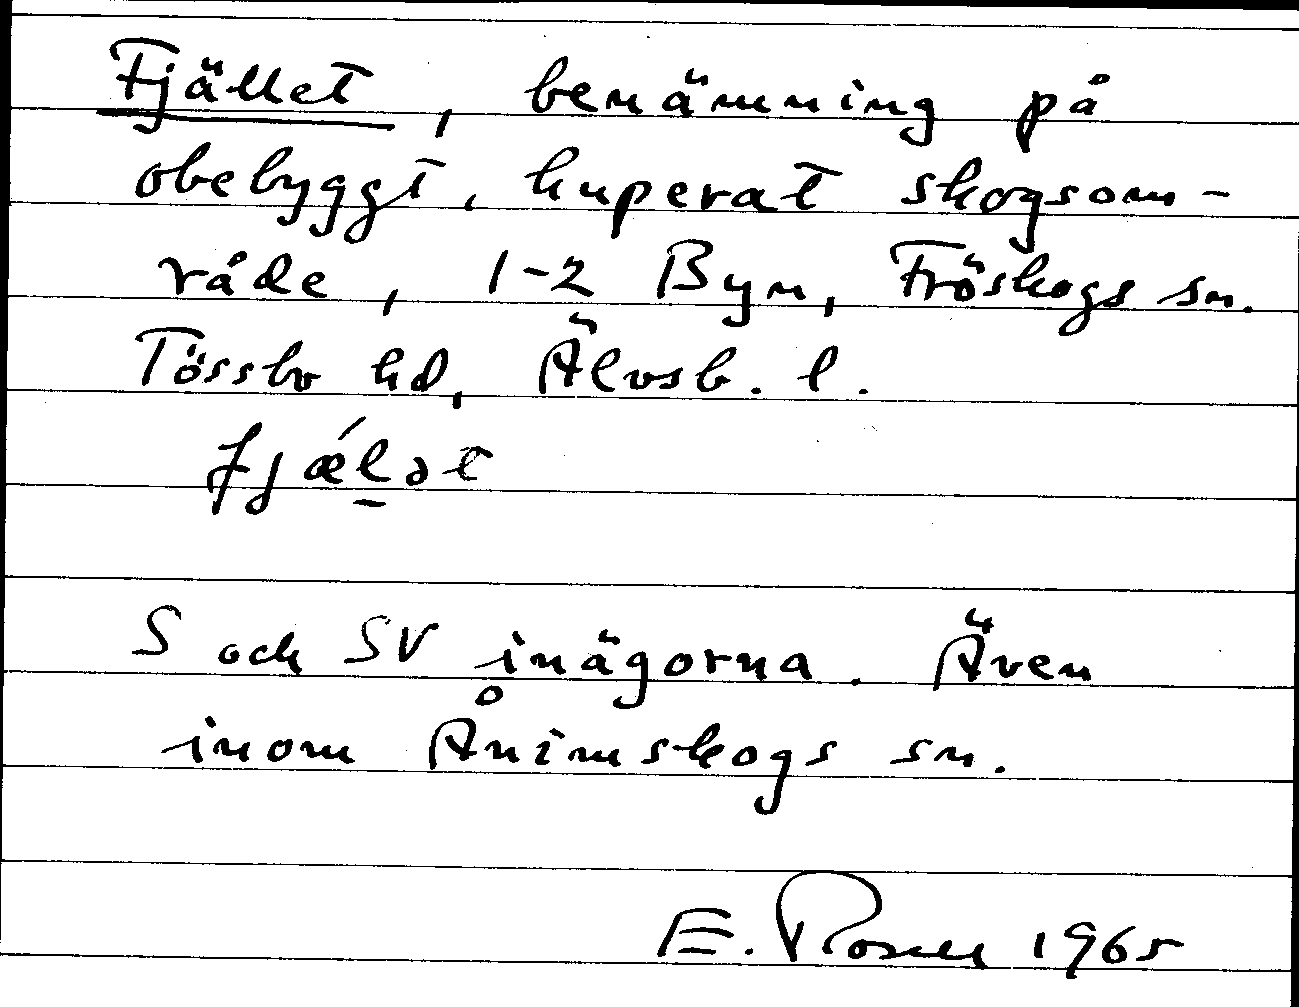 Fjället, benämning på
obebyggt, kuperat skogsom-
råde, 1-2 Byn, Fröskogs sn.
Tössbo hd, Älvsb. l.
fjæ´l̲ət
S och SV inägorna. Även
inom Ånimskogs sn.
E. Rosell 1965